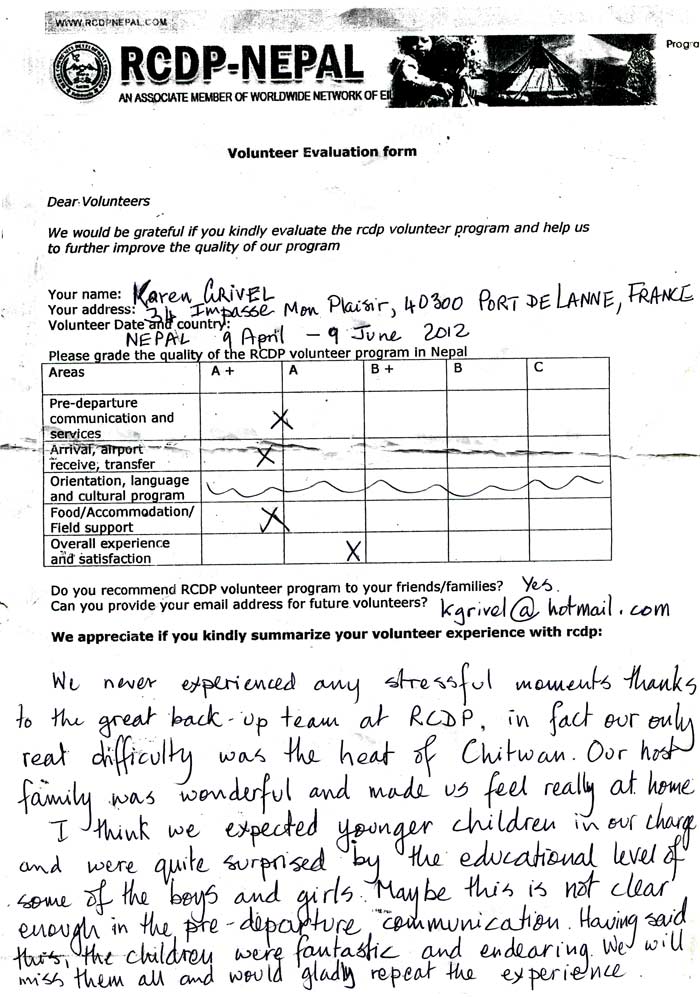 WWW.RCDPNEPAL.COM
RCDP-NEPAL
AN ASSOCIATE MEMBER OF WORLDWIDE NETWORK OF
Volunteer Evaluation form
Dear Volunteers
We would be grateful if you kindly evaluate the rcdp volunteer program and help us
to further improve the quality of our program
Your name: Karen GRIVEL
Your address: 34 Impasse Mon Plaisir, 40300 PORT DE LANNE, FRANCE
Volunteer Date and country:
NEPAL 9 April - 9 June 2012
Please grade the quality of the RCDP volunteer program in Nepal
Areas A + A B + B C
Pre-departure
communication and
services X
Arrival, airport
receive, transfer X
Orientation, language
and cultural program
Food/Accommodation/
Field support X
Overall experience
and satisfaction X
Do you recommend RCDP volunteer program to your friends/families? Yes.
Can you provide your email address for future volunteers? kgrivel@hotmail.com
We appreciate if you kindly summarize your volunteer experience with rcdp:
We never experienced any stressful moments thanks
to the great back-up team at RCDP, in fact our only
real difficulty was the heat of Chitwan. Our host
family was wonderful and made us feel really at home
I think we expected younger children in our charge
and were quite surprised by the educational level of
some of the boys and girls. Maybe this is not clear
enough in the pre-departure communication. Having said
this, the children were fantastic and endearing. We will
miss them all and would gladly repeat the experience.